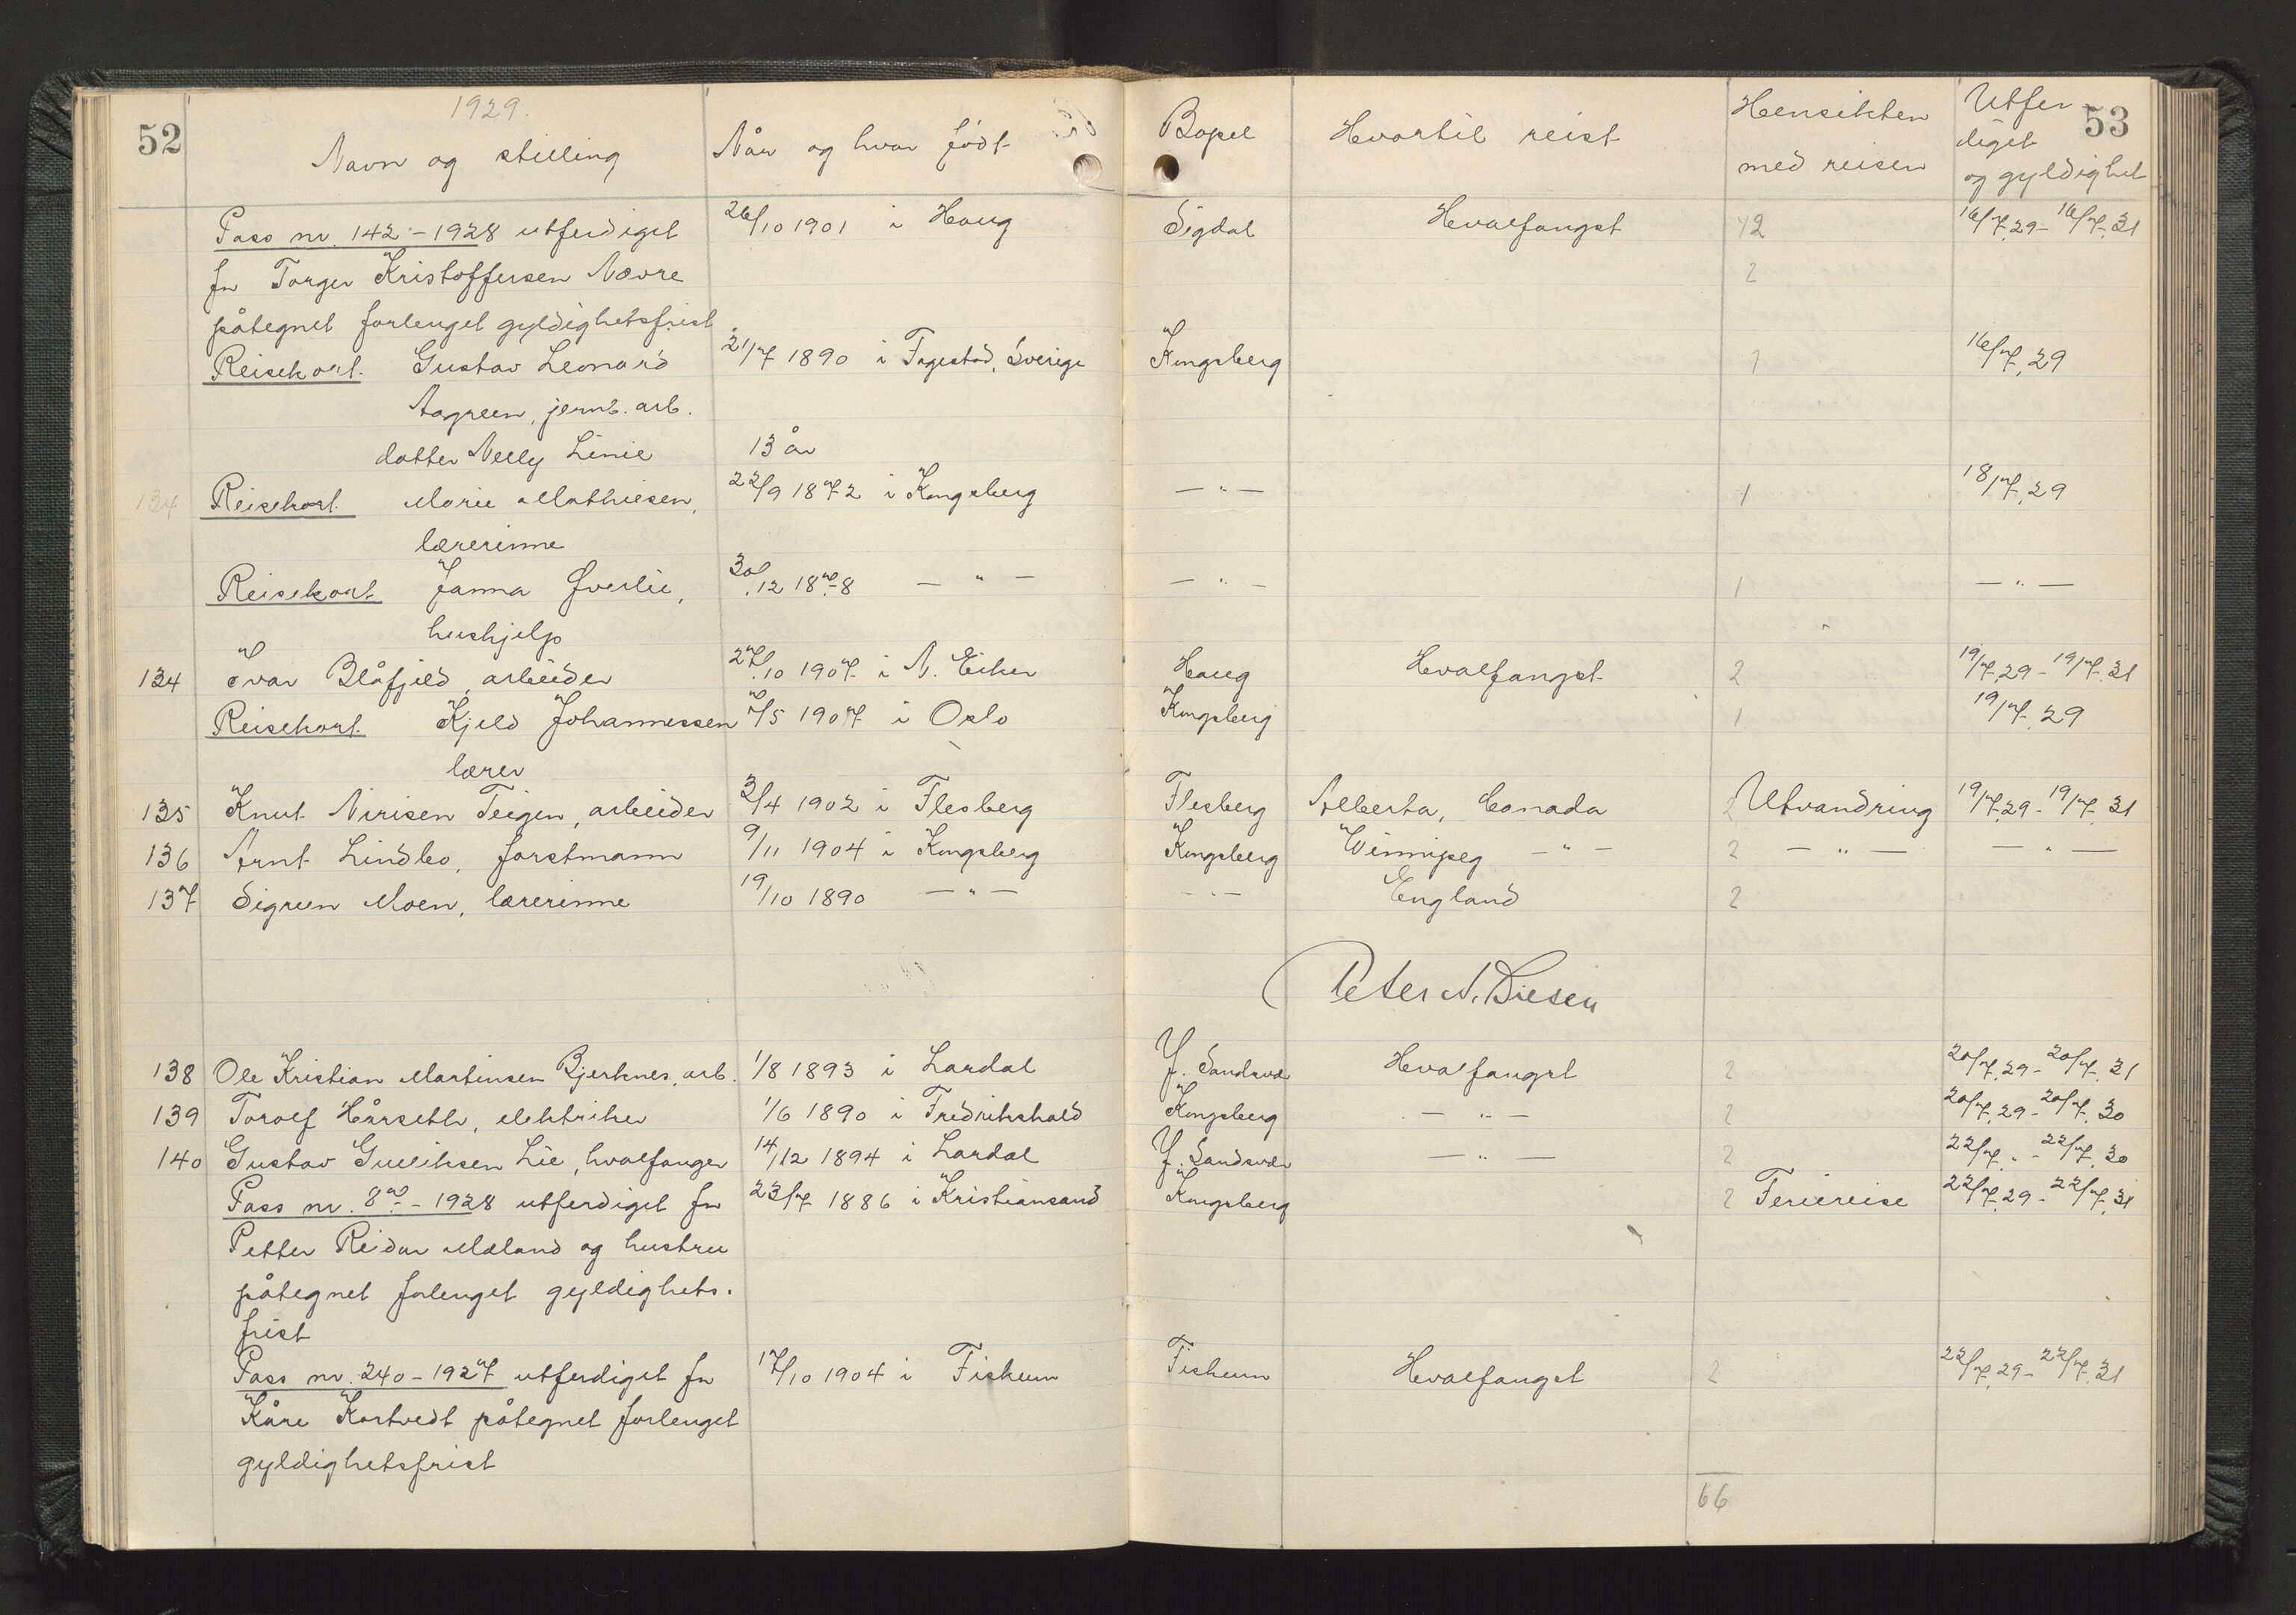 52 1929. 53
Navn og stilling Når og hvor født Bopel Hvortil reist Hensikten med reisen Utferdiget og gyldighet
Pass nr. 142 - 1928 utferdiget 26/10 1901 i Haug Sigdal Hvalfangst 42 16/7.29 - 16/7.31
for Torger Kristoffersen Nævre 2
påtegnet forlenget gyldighetsfrist
Reisekort. Gustav Leonard 21/7 1890 i Sverige Kongsberg 1 16/7.29
jernb. arb.
datter Nelly Linie 13 år
134 Reisekort. Marie Mathiesen, 22/9 1872 i Kongsberg — " — 1 18/7.29
lærerinne
Reisekort Janna Øverlie, 30/12 1878 — " — — " — 1 — " —
hushjelp
134 Ivar Blåfjeld, arbeider 27/10 1907 i N. Eiker Haug Hvalfangst 2 19/7.29 - 19/7.31
Reisekort. Kjeld Johannessen 7/5 1907 i Oslo Kongsberg 1 19/7.29
lærer
135 Knut Nirisen Teigen, arbeider 3/4 1902 i Flesberg Flesberg Alberta, Canada 2 Utvandring 19/7.29 - 19/7.31
136 Arnt Lindbo, forstmann 9/11 1904 i Kongsberg Kongsberg Winnipeg — " — 2 — " — — " —
137 Sigrun Moen, lærerinne 19/10 1890 — " — — " — England 2
Peter N.
138 Ole Kristian Martinsen Bjerknes, arb. 1/8 1893 i Lardal Y. Sandsvær Hvalfangst 2 20/7.29 - 20/7.31
139 Torolf Hårseth, elektriker 1/6 1890 i Fredrikshald Kongsberg — " — 2 20/7.29 - 20/7.30
140 Gustav Gulliksen Lie, hvalfanger 14/12 1894 i Lardal Y. Sandsvær — " — 2 22/7. " - 22/7.30
Pass nr. 87 - 1928 utferdiget for 23/7 1886 i Kristiansand Kongsberg 2 Feriereise 22/7.29 - 22/7.31
Petter Reidar Mæland og hustru
påtegnet forlenget gyldighets-
frist
Pass nr. 240 - 1927 utferdiget for 17/10 1904 i Fiskum Fiskum Hvalfangst 2 22/7.29 - 22/7.31
Kåre Kortvedt påtegnet forlenget
gyldighetsfrist
66